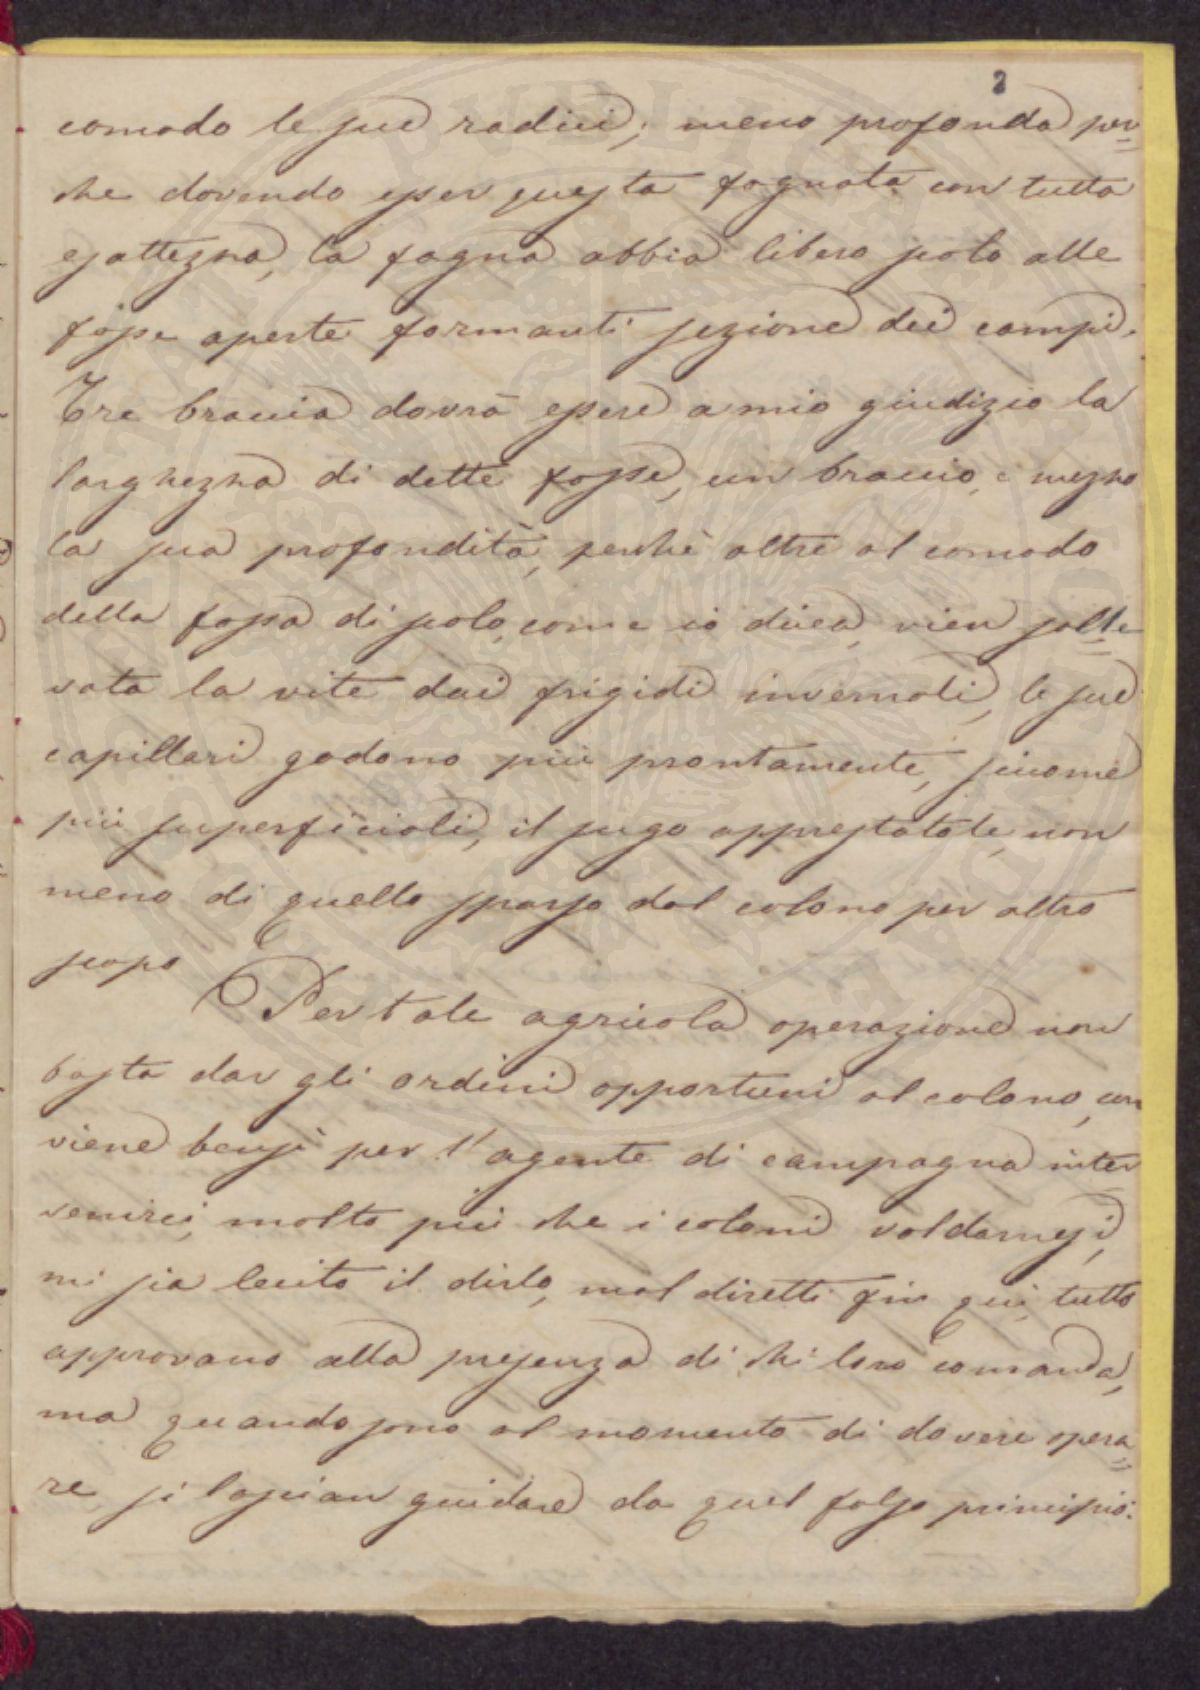 2
comodo le sue radici; meno profonda per=
che dovendo esser questa fognata con tutta
esattezza, la fogna abbia libero scolo alle
fosse aperte formanti sezione dei campi.
Tre braccia dovrà essere a mio giudizio la
larghezza di dette fosse, un braccio, e mezzo
la sua profondità, perchè oltre al comodo
della fossa di scolo, come io dicea, vien solle=
vata la vite dai frigidi invernali, le sue
capillari godono più prontamente, siccome
più superficiali, il sugo apprestatole, non
meno di quello sparso dal colono per altro
scopo
Per tale agricola operazione non
basta dar gli ordini opportuni al colono, con
viene bensì per l'agente di campagna inter
venirci, molto più che i coloni valdarnesi,
mi sia lecito il dirlo, mal diretti fin qui, tutto
approvano alla presenza di chi loro comanda,
ma quando sono al momento di dovere opera=
re, si lascian guidare da quel falso principio: